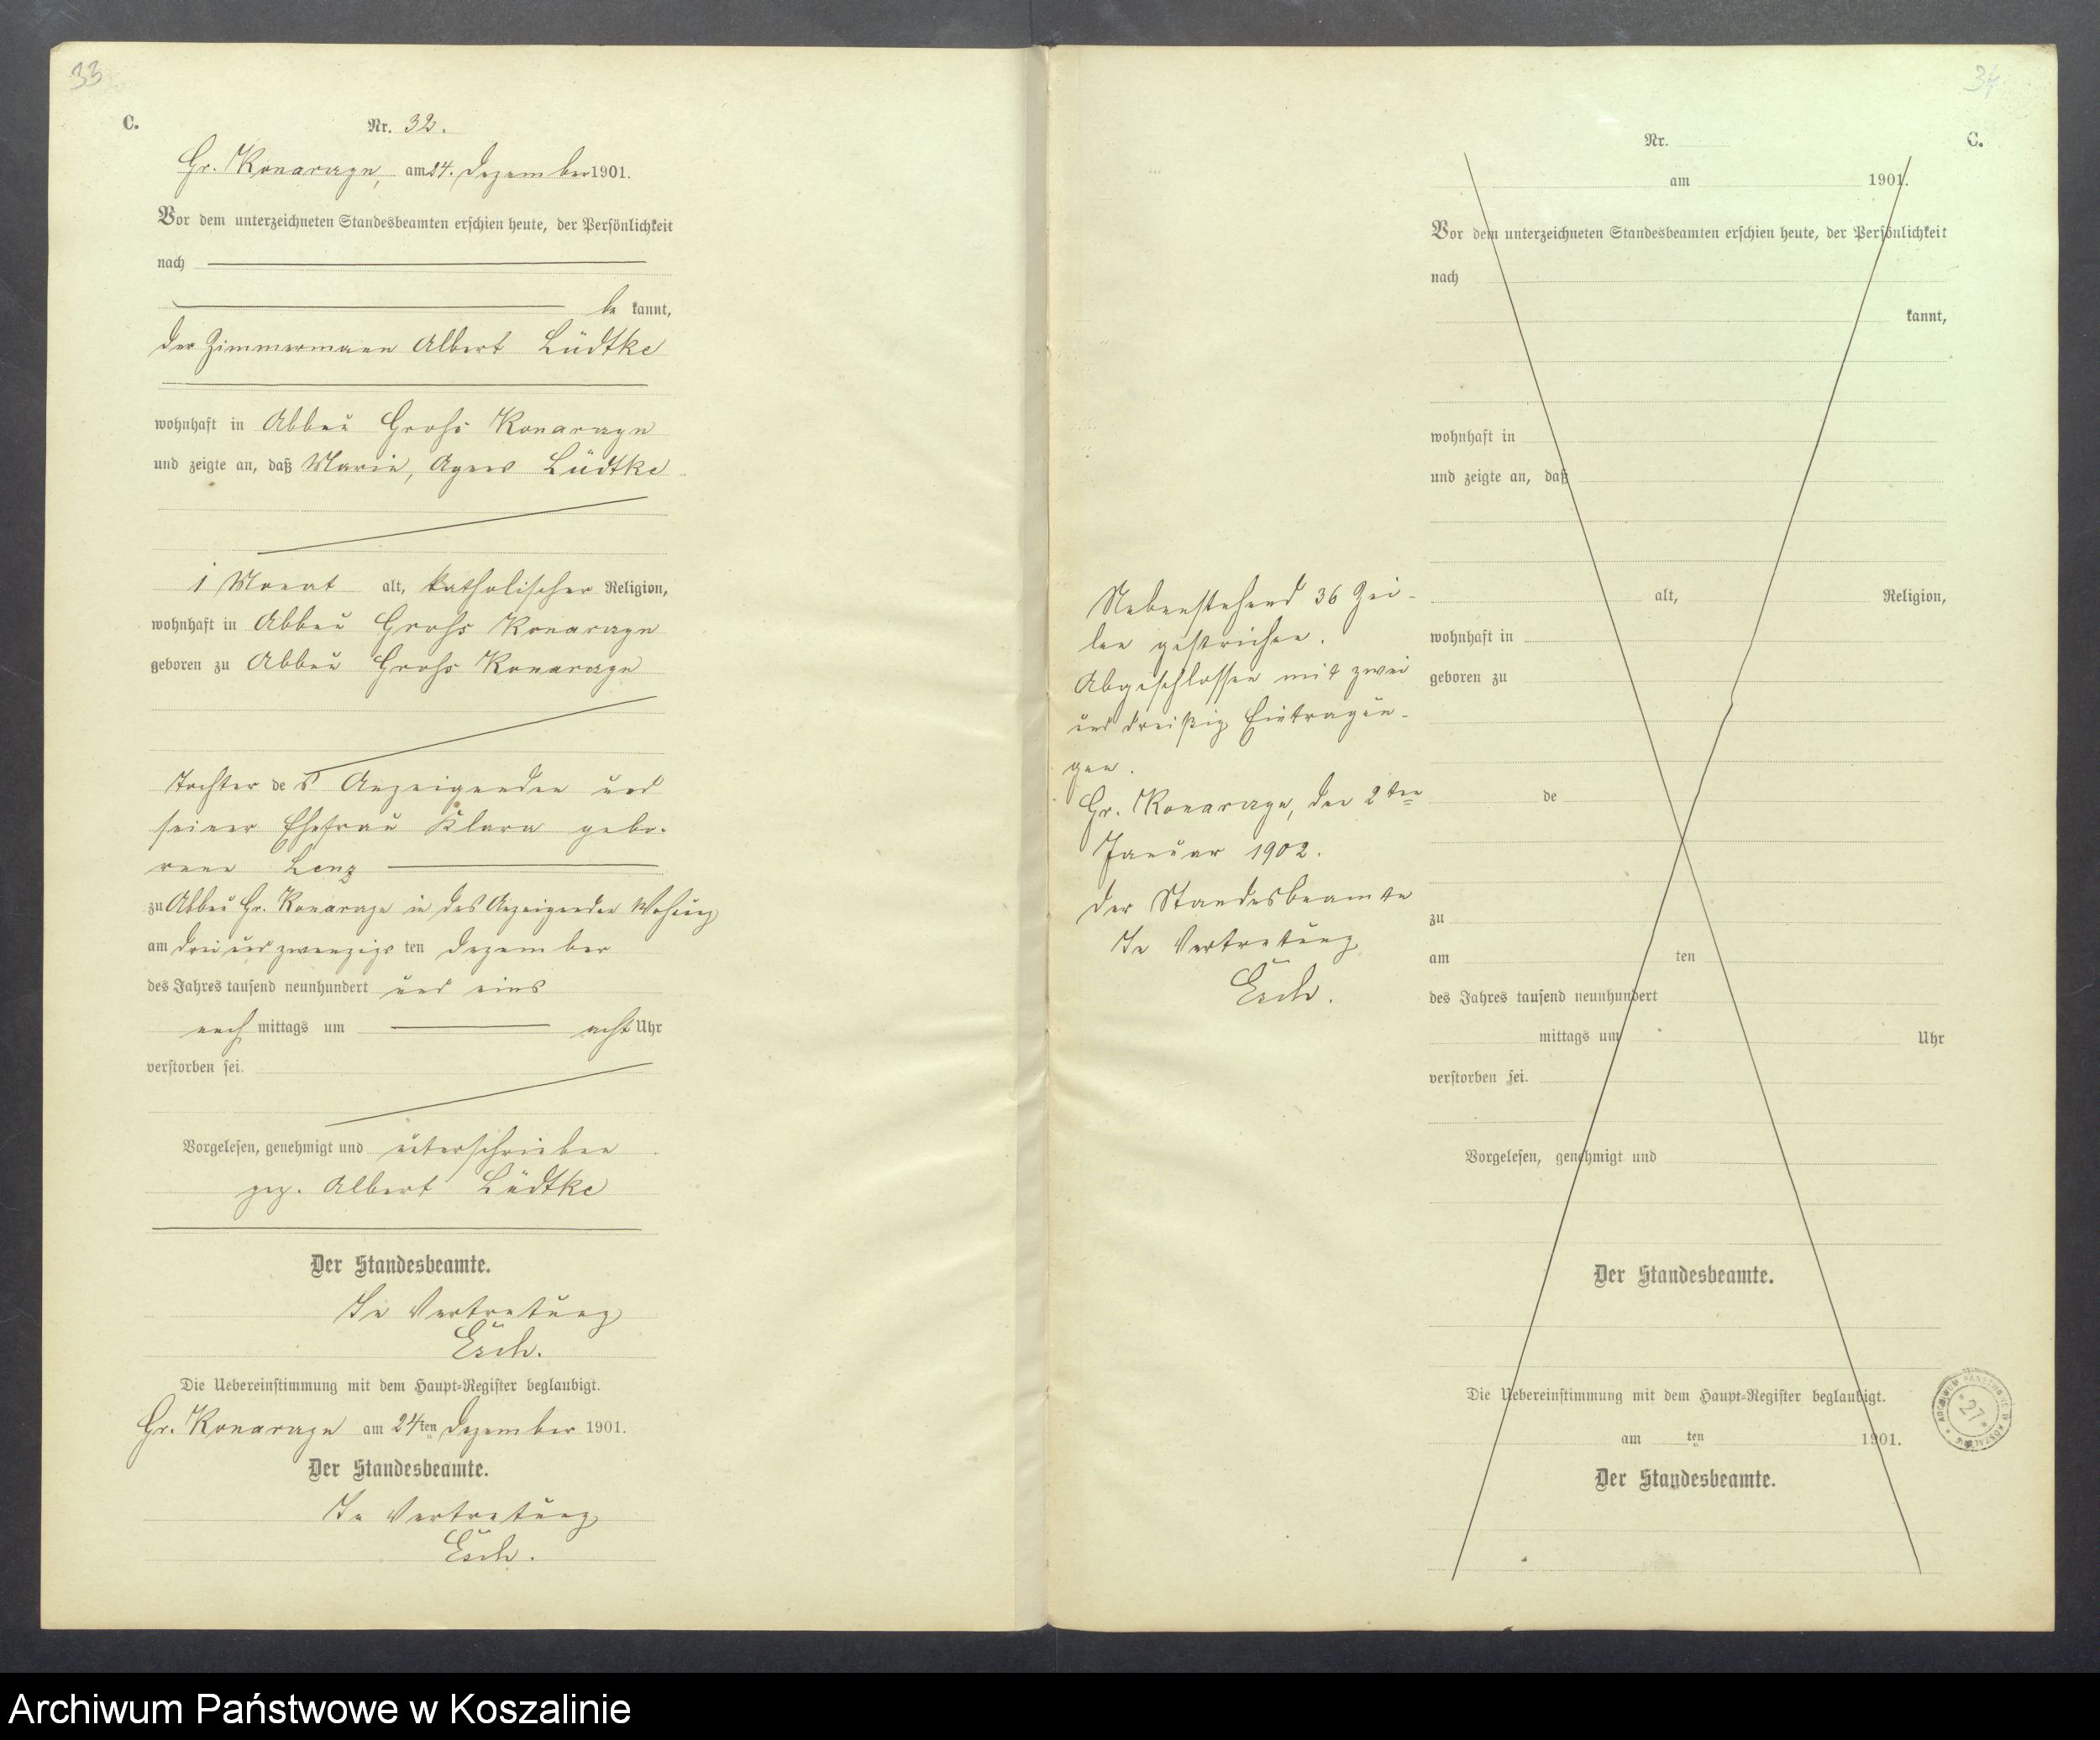 33
C.
Nr. 32.
Gr. Konarzyn, am 24. Dezember 1901.
Vor dem unterzeichneten Standesbeamten erschien heute, der Persönlichkeit
nach
be kannt,
der Zimmermann Albert Lüdtke
wohnhaft in Abbau Gross Konarzyn
und zeigte an, daß Maria, Agnes Lüdtke
1 Monat alt, katholischer Religion,
wohnhaft in Abbau Gross Konarzyn
geboren zu Abbau Gross Konarzyn
Tochter des Anzeigenden und
seiner Ehefrau Klara gebo-
rene Lenz
zu Abbau Gr. Konarzyn in des Anzeigenden Wohung
am drei und zwanzigs ten Dezember
des Jahres tausend neunhundert und eins
nach mittags um acht Uhr
verstorben sei.
Vorgelesen, genehmigt und unterschrieben
gez. Albert Lüdtke
Der Standesbeamte.
In Vertretung
Esch.
Die Uebereinstimmung mit dem Haupt-Register beglaubigt.
Gr. Konarzyn am 24ten Dezember 1901.
Der Standesbeamte.
In Vertretung
Esch.
34
Nr.
C.
am 1901.
Vor dem unterzeichneten Standesbeamten erschien heute, der Persönlichkeit
nach
kannt,
wohnhaft in
und zeigte an, daß
alt, Religion,
wohnhaft in
geboren zu
de
zu
am ten
des Jahres tausend neunhundert
mittags um Uhr
verstorben sei.
Vorgelesen, genehmigt und
Der Standesbeamte.
Die Uebereinstimmung mit dem Haupt-Register beglaubigt.
am ten 1901.
Der Standesbeamte.
Nebenstehend 36 Zei-
len gestrichen.
Abgeschlossen mit zwei
und dreißig Eintragun-
gen.
Gr. Konarzyn, den 2ten
Januar 1902.
Der Standesbeamte
In Vertretung
Esch.
ARCHIWUM PAŃSTWOWE W KOSZALINIE
27
Archiwum Państwowe w Koszalinie